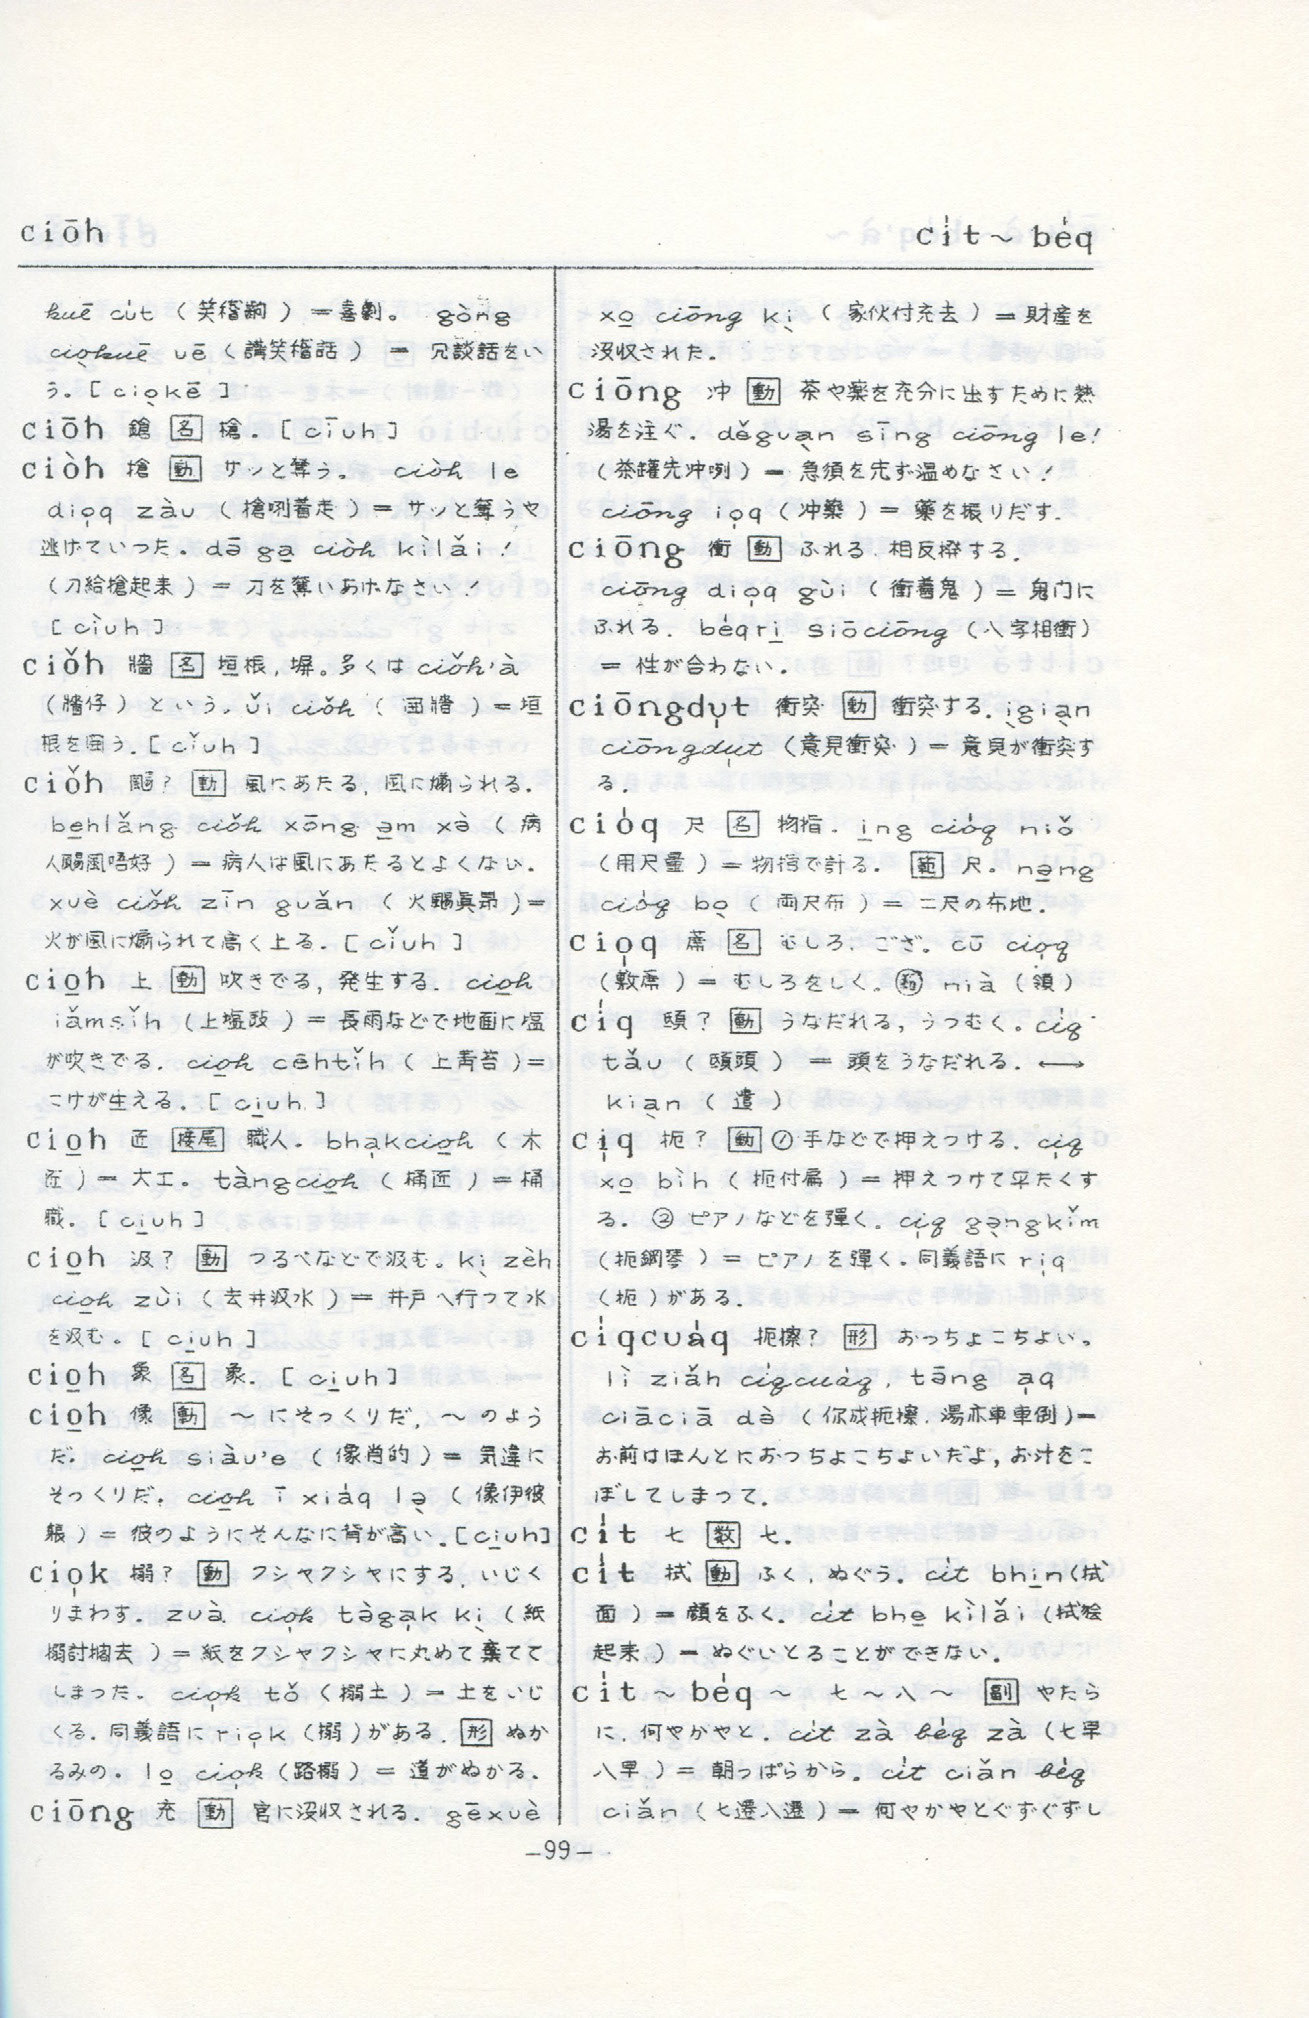 ciōh
cit ~ béq
kuē cút (笑稽齣) =喜劇。 gòng
cio̤kuē uē (講笑稽話) = 冗談話をい
う。[cio̤kē]
ciōh 鎗 [名] 槍. [cīuh]
ciòh 搶 [動] サッと奪う。 ciòh le
dio̤q zàu (搶咧着走) = サッと奪うや
逃げていった。 dō ga̱ ciòh kìlǎi!
(刀給搶起来) = 刀を奪いあげなさい!
[cìuh]
ciǒh 牆 [名] 垣根, 塀。多くは ciǒh'à
(牆仔) という。 ǔi ciǒh (囲牆) = 垣
根を囲う. [cǐuh]
ciǒh 颺? [動] 風にあたる, 風に煽られる.
be̱hlǎng ciǒh xōng a̱m xò (病
人颺風唔好) = 病人は風にあたるとよくない.
xuè ciǒh zīn guǎn (火颺真昂) =
火が風に煽られて高く上る. [cǐuh]
cio̱h 上 [動] 吹きでる, 発生する. cio̱h
iǎmsǐh (上塩豉) = 長雨などで地面に塩
が吹きでる. cio̱h cēhtǐh (上青苔) =
こけが生える. [ci̱uh]
cio̱h 匠 [接尾] 職人. bha̤kcio̱h (木
匠) = 大工。 tàngcio̱h (桶匠) = 桶
職. [ci̱uh]
cio̱h 汲? [動] つるべなどで汲む. ki̤ zèh
cio̱h zùi (去井汲水) = 井戸へ行って水
を汲む。 [ci̱uh]
cio̱h 象 [名] 象. [ci̱uh]
cio̱h 像 [動] ~にそっくりだ, ~のよう
だ. cio̱h siàu'e (像肖的) = 気違に
そっくりだ. cio̱h ī xiáq lə̤ (像伊彼
躼) = 彼のようにそんなに背が高い. [ci̱uh]
cio̤k 搦? [動] クシャクシャにする, いじく
りまわす. zuà cio̤k tàga̤k ki̤ (紙
搦討捔去) = 紙をクシャクシャに丸めて棄てて
しまった. cio̤k tǒ (搦土) = 土をいじ
くる. 同義語に rio̤k (搦)がある. [形] ぬか
るみの。 lo̱ cio̤k (路搦) = 道がぬかる.
ciōng 充 [動] 官に没収される. gēxuè
xo̱ ciōng ki̤ (家伙付充去) = 財産を
没収された.
ciōng 冲 [動] 茶や薬を充分に出すために熱
湯を注ぐ. děgua̤n sīng ciōng le!
(茶罐先冲咧) = 急須を先ず温めなさい!
ciōng io̤q (冲薬) = 薬を振りだす.
ciōng 衝 [動] ふれる. 相反撥する.
ciōng dio̤q gùi (衝着鬼) = 鬼門に
ふれる. béqri̱ siōciōng (八字相衝)
= 性が合わない.
ciōngdṳt 衝突 [動] 衝突する. i̤gia̤n
ciōngdṳt (意見衝突) = 意見が衝突す
る.
cióq 尺 [名] 物指. i̱ng cióq niǒ
(用尺量) = 物指で計る. [範] 尺. nə̱ng
cióq bo̤ (両尺布) = 二尺の布地.
cio̤q 蓆 [名] むしろ, ござ. cū cio̤q
(敷蓆) = むしろをしく。 ㊗ nià (領)
cíq 頤? [動] うなだれる, うつむく. cíq
tǎu (頤頭) = 頭をうなだれる. ⟷
kia̤n (遣)
ci̤q 扼? [動] ①手などで押えつける. ci̤q
xo̱ bìh (扼付扁) = 押えつけて平たくす
る. ②ピアノなどを弾く. ci̤q gə̤ngkǐm
(扼鋼琴) = ピアノを弾く. 同義語に ri̤q
(扼)がある.
cíqcuáq 扼擦? [形] おっちょこちょい。
lì ziǎh cíqcuáq, tāng a̤q
ciāciā dò (你成扼擦, 湯亦車車倒) =
お前はほんとにおっちょこちょいだよ, お汁をこ
ぼしてしまって.
cít 七 [数] 七.
cít 拭 [動] ふく, ぬぐう. cít bhi̱n (拭
面) = 顔をふく. cít bhe̱ kìlǎi (拭𫝛
起来) = ぬぐいとることができない.
cít ~ béq ~ 七~八~ [副] やたら
に. 何やかやと. cít zà béq zà (七早
八早) = 朝っぱらから. cít ciǎn béq
ciǎn (七遷八遷) = 何やかやとぐずぐずし
-99-